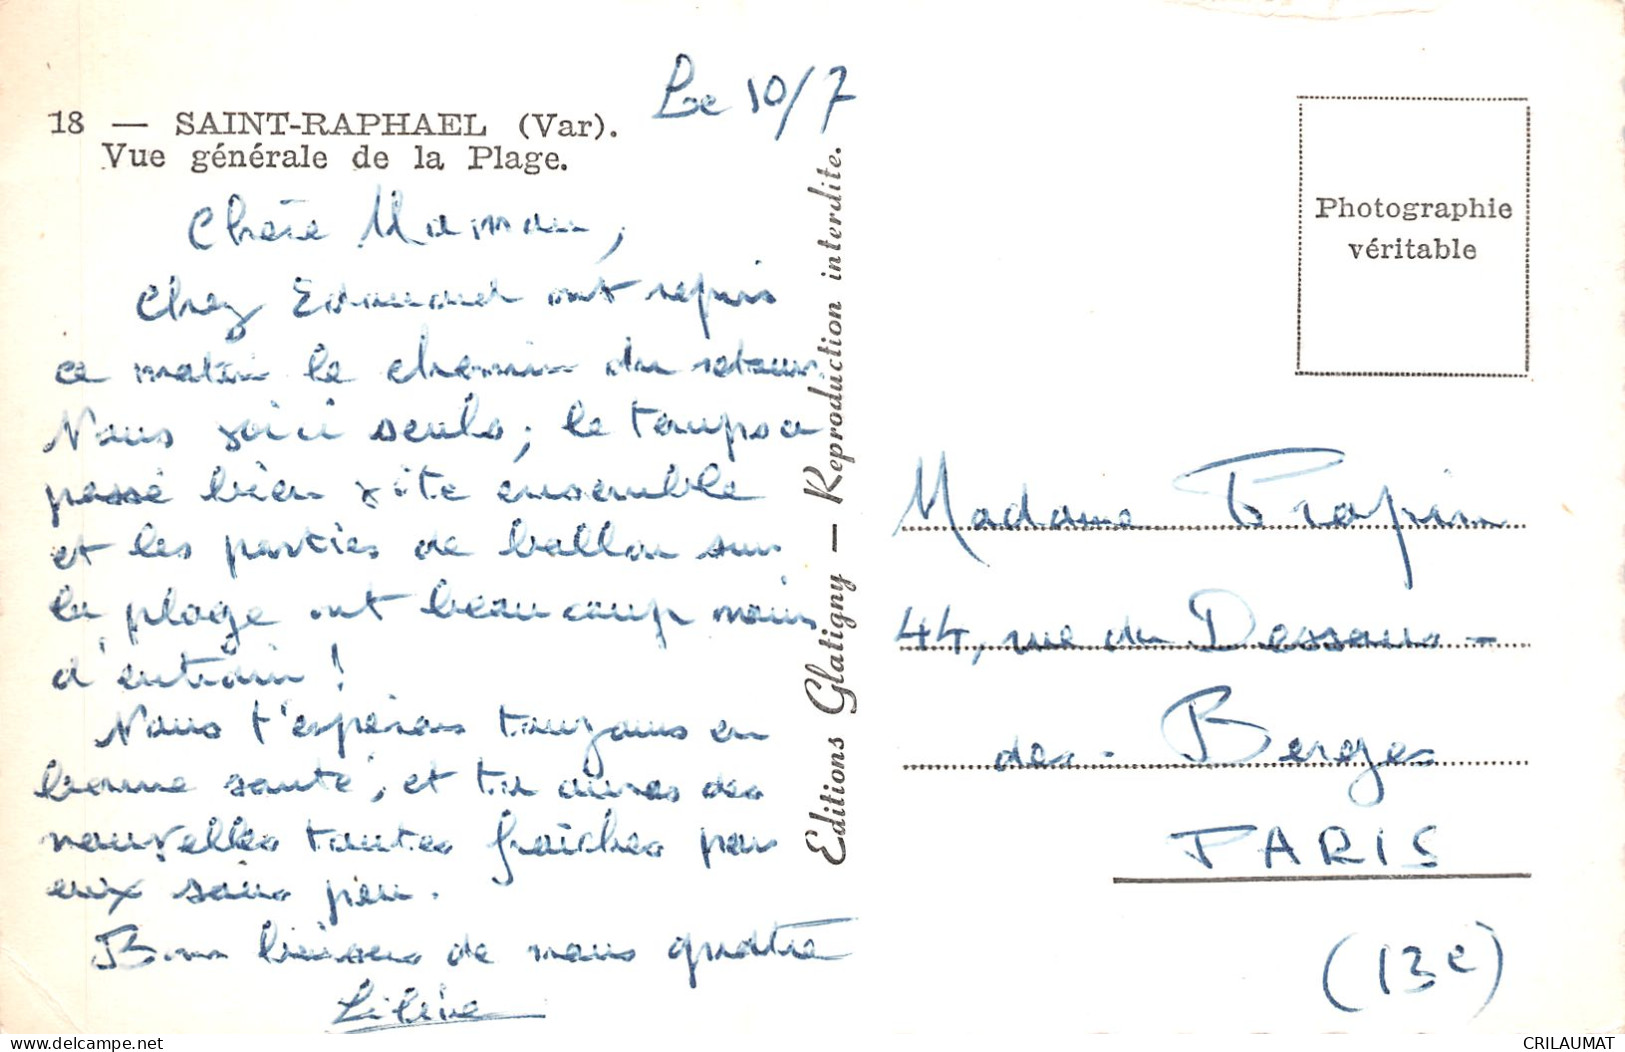 Le 10/7
18 — SAINT-RAPHAEL (Var).
Vue générale de la Plage.
Chère Maman,
Chez Edouard ont repris
ce matin le chemin du retour.
Nous voici seuls, le temps a
passé bien vite ensemble
et les parties de ballon sur
la plage ont beaucoup moins
d'entrain !
Nous t'espérons toujours en
bonne santé, et tu auras des
nouvelles toutes fraîches par
eux sous peu.
Bons baisers de nous quatre
Editions Glatigny — Reproduction interdite.
Photographie
véritable
Madame
44, rue du Dessous-
des-Berges
PARIS
(13e)
https://www.delcampe.net
CRILAUMAT